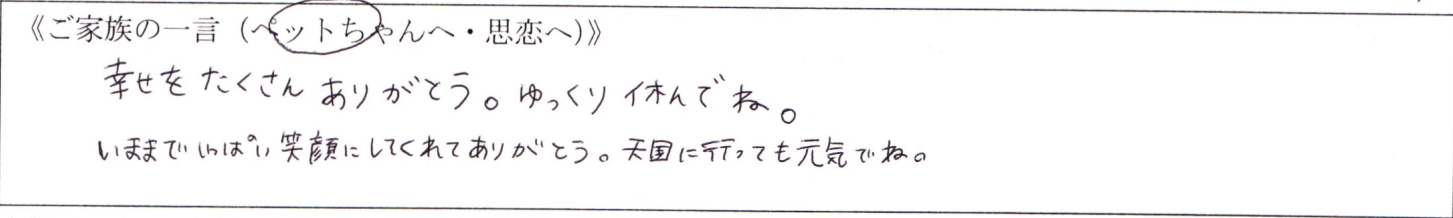 《ご家族の一言（ペットちゃんへ・思恋へ）》
幸せをたくさんありがとう。ゆっくり休んでね。
いままでいっぱい笑顔にしてくれてありがとう。天国に行っても元気でね。